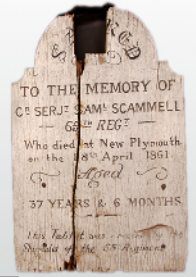 SACRED
TO THE MEMORY OF
Cr SERJt SAML SCAMMELL
65TH REGT
Who died at New Plymouth
on the 18th April 1861.
Aged
37 YEARS & 6 MONTHS
This Tablet was by the
of the 65 Regiment